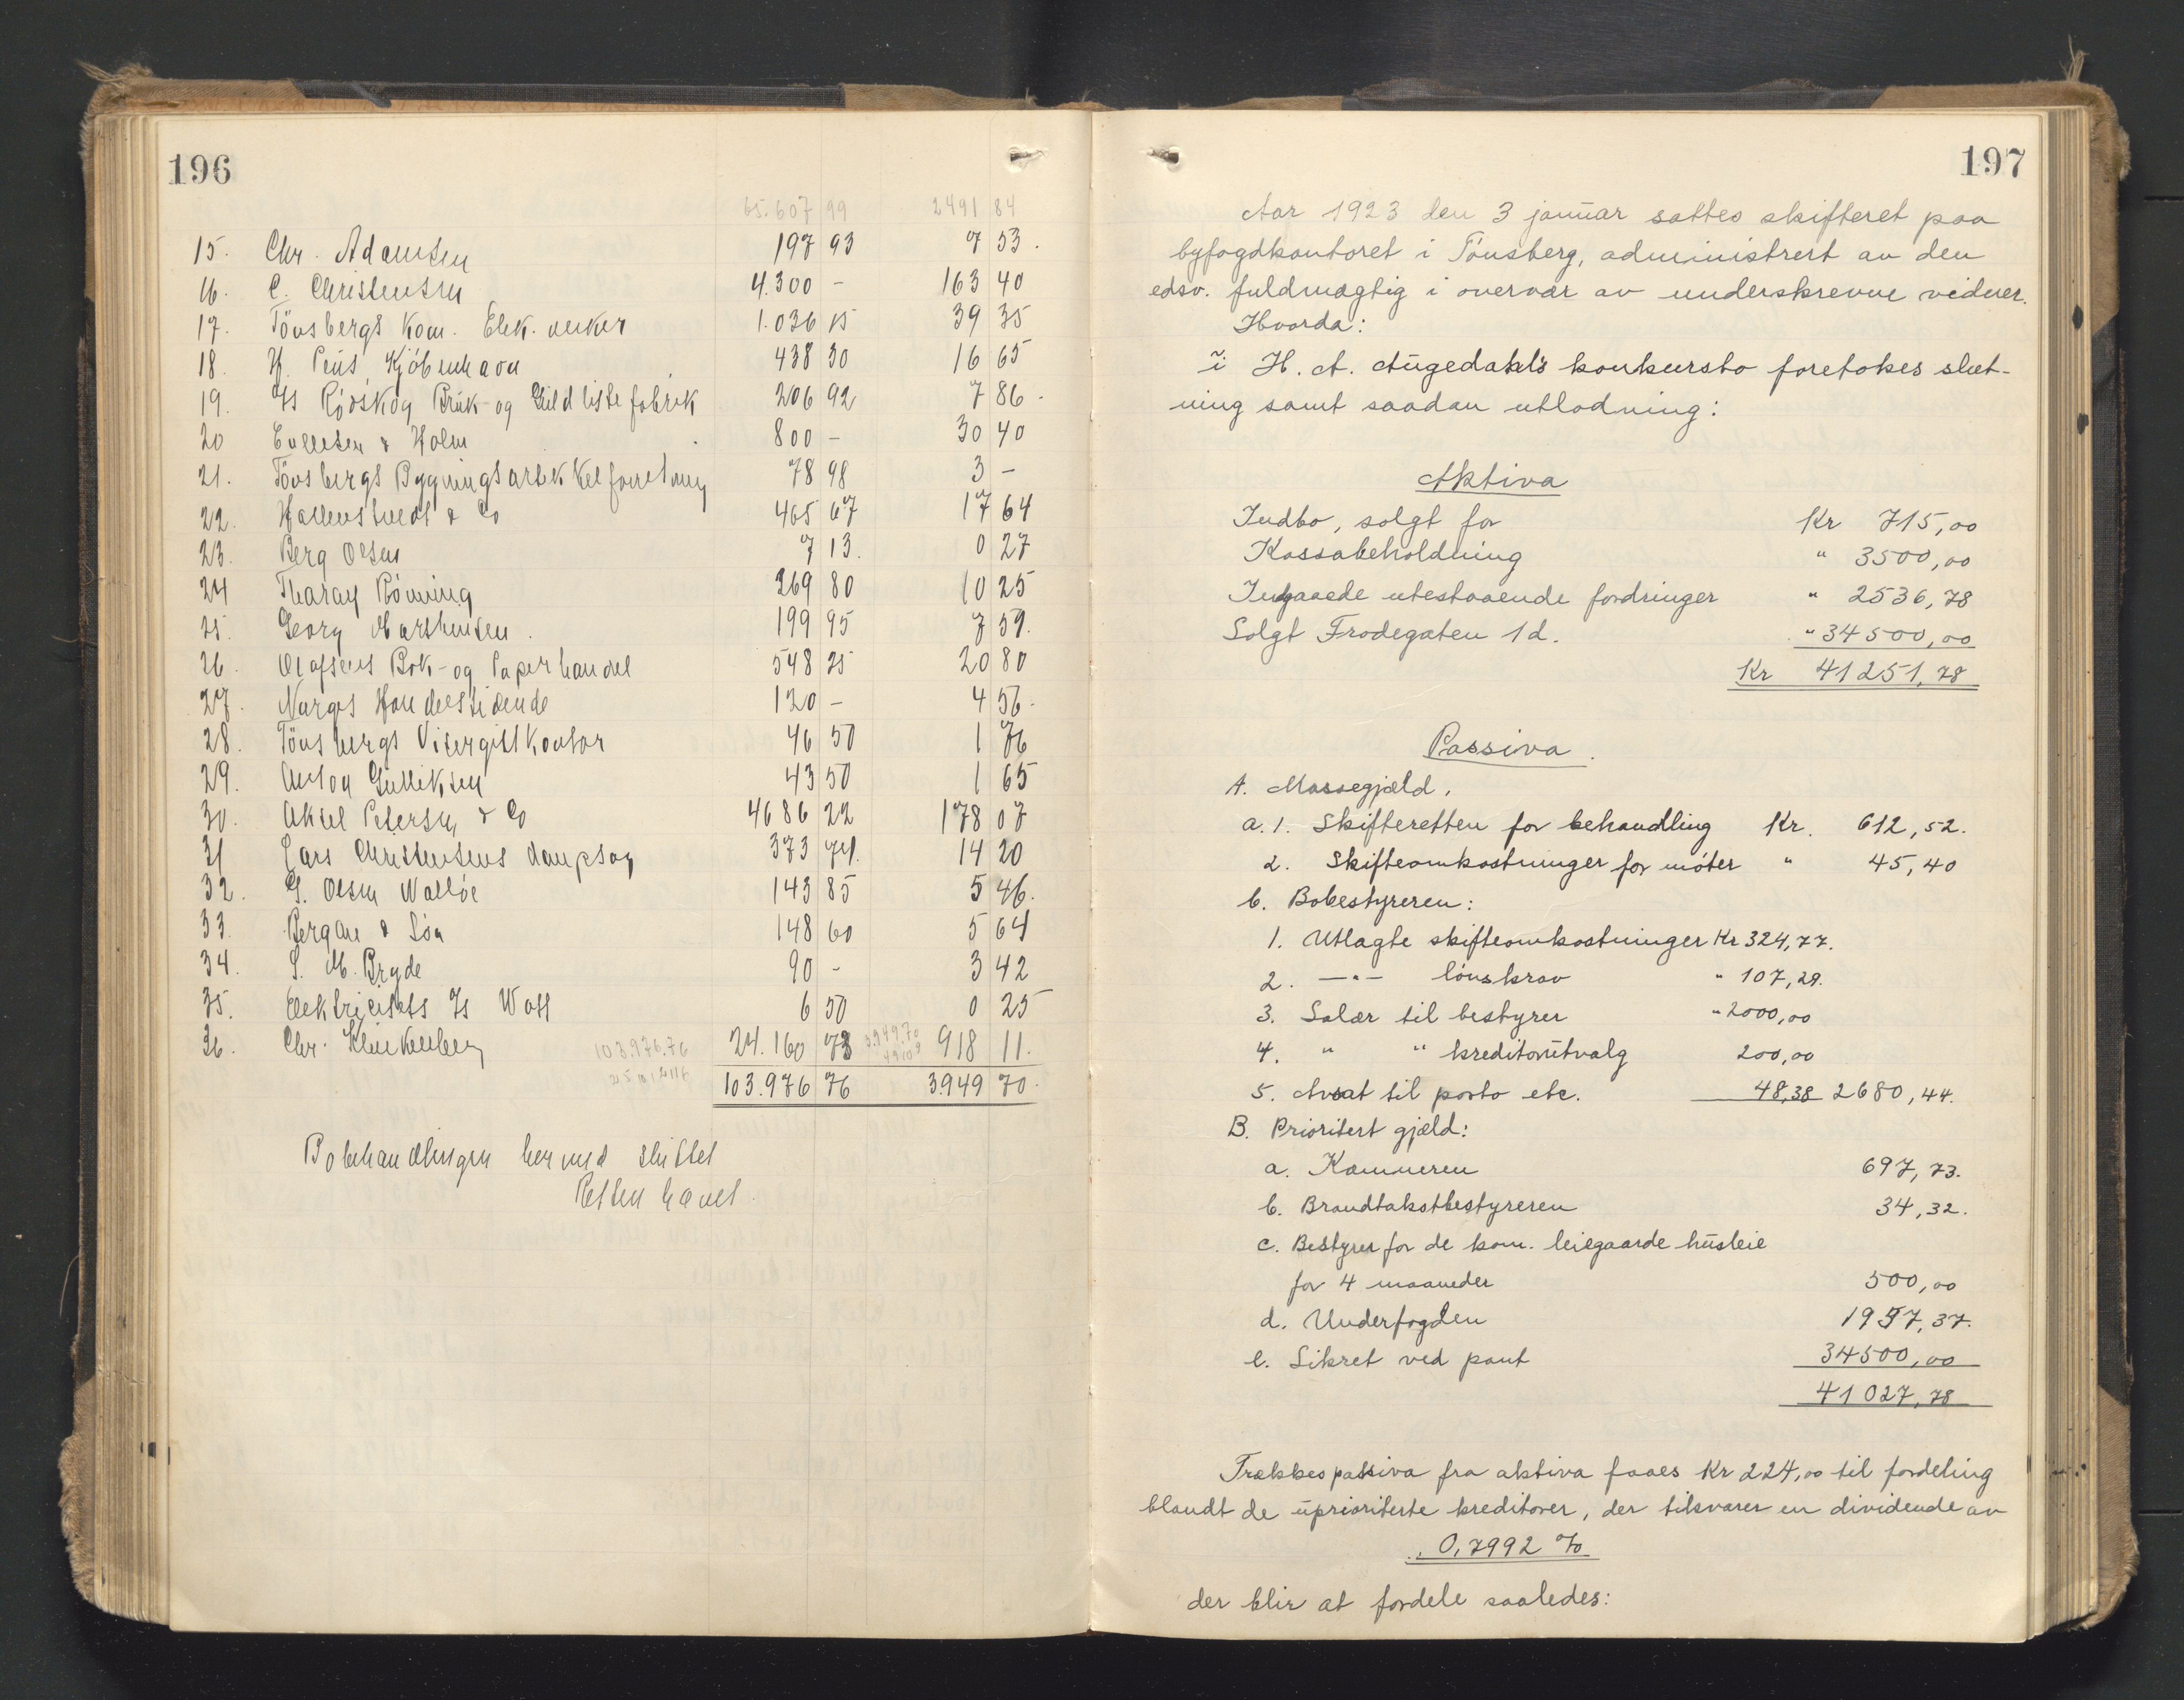 196
65.607 99 2491 84
15. Chr. Adamsen 197 93 7 53.
16. C. Christensen 4.300 - 163 40
17. Tönsbergs Kom. Elek. verker 1.036 15 39 35
18. H. Pens, Kjöbenhavn 438 30 16 65
19. A/s Rjöskog Bruk- og Guldlistefabrik 206 92 7 86-
20 Evensen & Holm 800 - 30 40
21. Tönsbergs Bygningsartikkelforretning 78 98 3 -
22. & Co 465 67 17 64
23. Berg Olsen 7 13. 0 27
24 Rönning 269 80 10 25
25. Georg Marthinsen. 199 95 7 59.
26. Olafsens Bok- og Papirhandel 548 25 20 80
27. Norges Handelstidende 120 - 4 56.
28. Tönsbergs Visergutkontor 46 50 1 76
29. Anton Gulliksen 43 50 1 65
30. Aksel Petersen & Co 4686 22 178 07
31 Lars Christensens dampsag 373 74. 14 20
32. G. Olsen Walløe 143 85 5 46.
33. Bergan & Sön 148 60 5 64
34. S. M. Bryde 90 - 3 42
35. Elektricitets A/s Watt 6 50 0 25
36. Chr. Klinkenberg 103.976.76 24.160 73 3949.70 918 11.
103.976 76 3.949 70.
Bobehandlingen hermed sluttet
Retten hævet.
197
Aar 1923 den 3 januar sattes skifteret paa
byfogdkontoret i Tönsberg, administrert av den
edsv. fuldmægtig i overvær av underskrevne vidner.
Hvorda:
i H. A. Augedahl's konkursbo foretokes slut-
ning samt saadan utlodning:
Aktiva
Indbo, solgt for Kr 715,00
Kassabeholdning " 3500,00
Indgaaede utestaaende fordringer " 2536,78
Solgt Frodegaten 1d. " 34500,00
Kr 41251,78
Passiva.
A. Massegjæld.
a. 1. Skifteretten for behandling Kr. 612,52.
2. Skifteomkostninger for möter " 45,40
b. Bobestyreren:
1. Utlagte skifteomkostninger Kr 324,77.
2. —"— lönskrav " 107,29.
3. Salær til bestyrer " 2000,00
4. " " kreditorutvalg 200,00
5. Avsat til porto etc. 48,38 2680,44.
B. Prioritert gjæld:
a. Kæmneren 697,73.
b. Brandtakstbestyreren 34,32.
c. Bestyrer for de kom. leiegaarde husleie
for 4 maaneder 500,00
d. Underfogden 1957,37.
e. Sikret ved pant 34500,00
41027,78
Trækkes passiva fra aktiva faaes Kr 224,00 til fordeling
blandt de uprioriterte kreditorer, der tilsvarer en dividende av
0,7992 %
der blir at fordele saaledes: